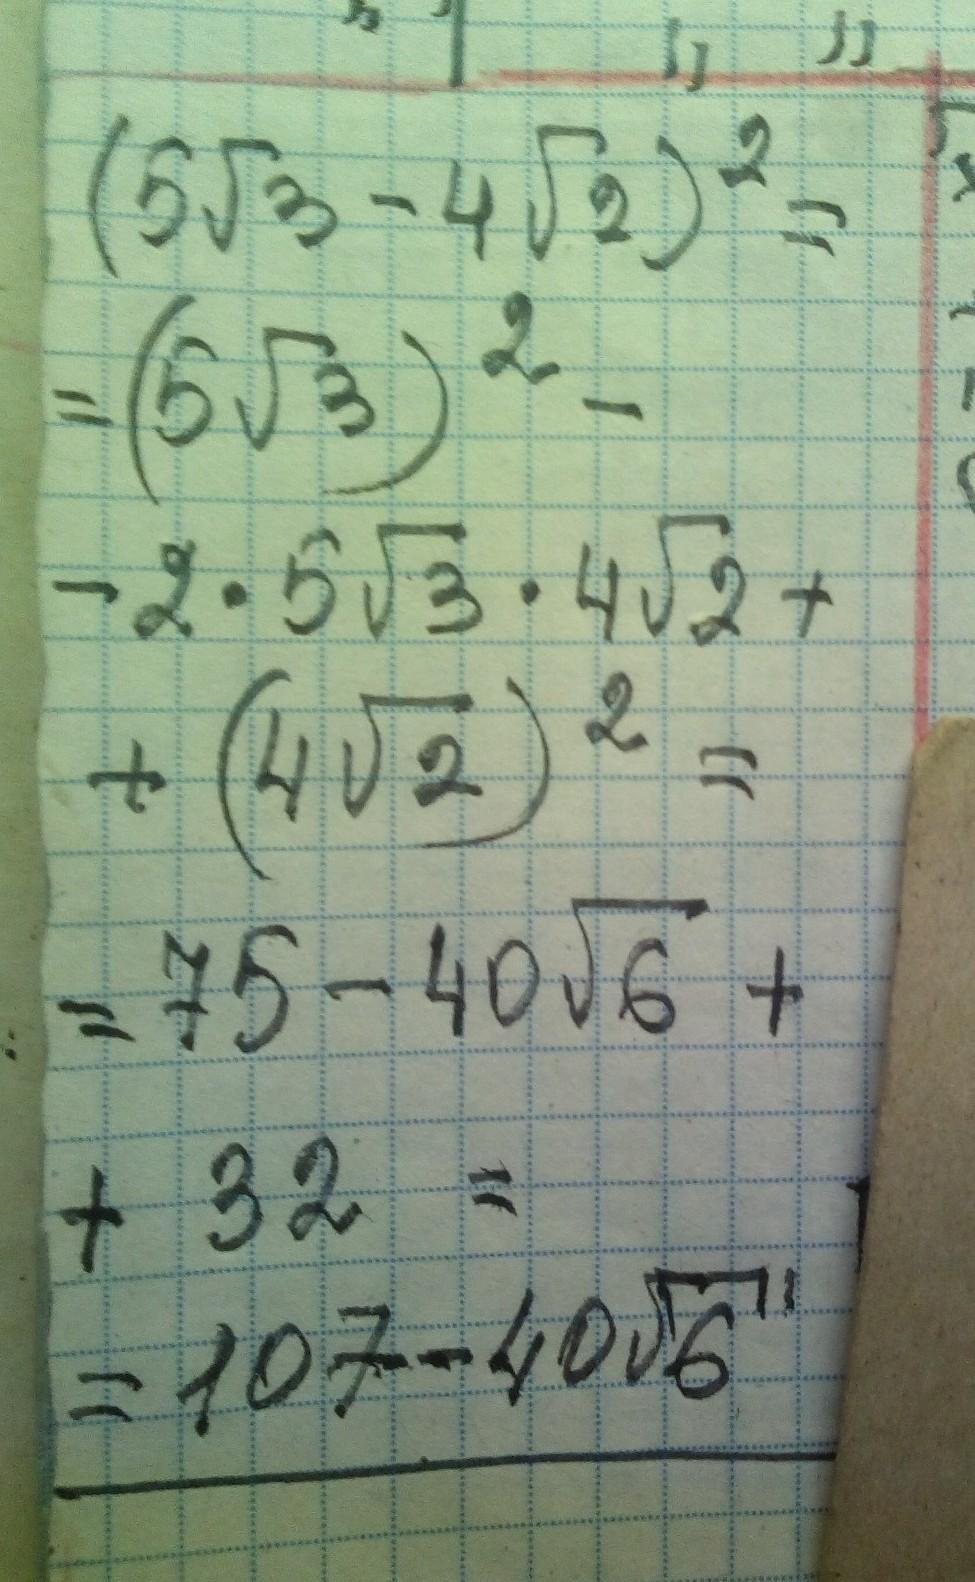 (5√3 - 4√2)² =
= (5√3)² -
- 2 · 5√3 · 4√2 +
+ (4√2)² =
= 75 - 40√6 +
+ 32 =
= 107 - 40√6